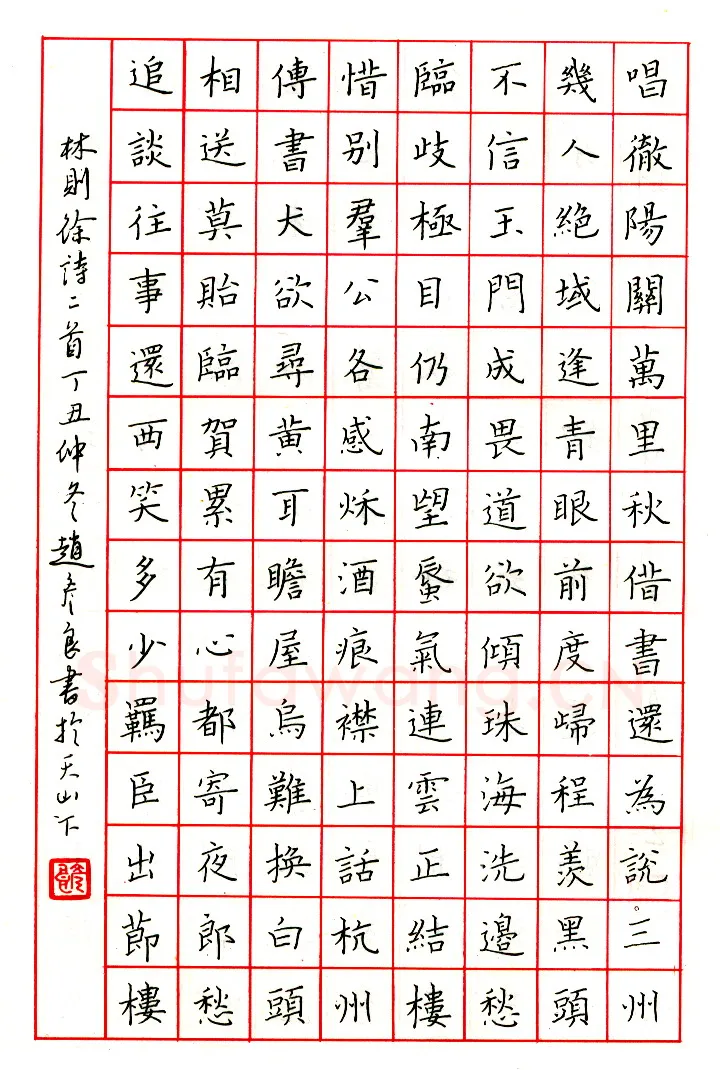 唱徹陽關萬里秋借書還為說三州
幾人絕域逢青眼前度歸程羨黑頭
不信玉門成畏道欲傾珠海洗邊愁
臨歧極目仍南望蜃氣連雲正結樓
惜别羣公各感秌酒痕襟上話杭州
傳書犬欲尋黄耳瞻屋烏難換白頭
相送莫貽臨賀累有心都寄夜郎愁
追談往事還西笑多少羈臣出節樓
林則徐詩二首丁丑仲冬趙彥良書於天山下
Shufawang.CN